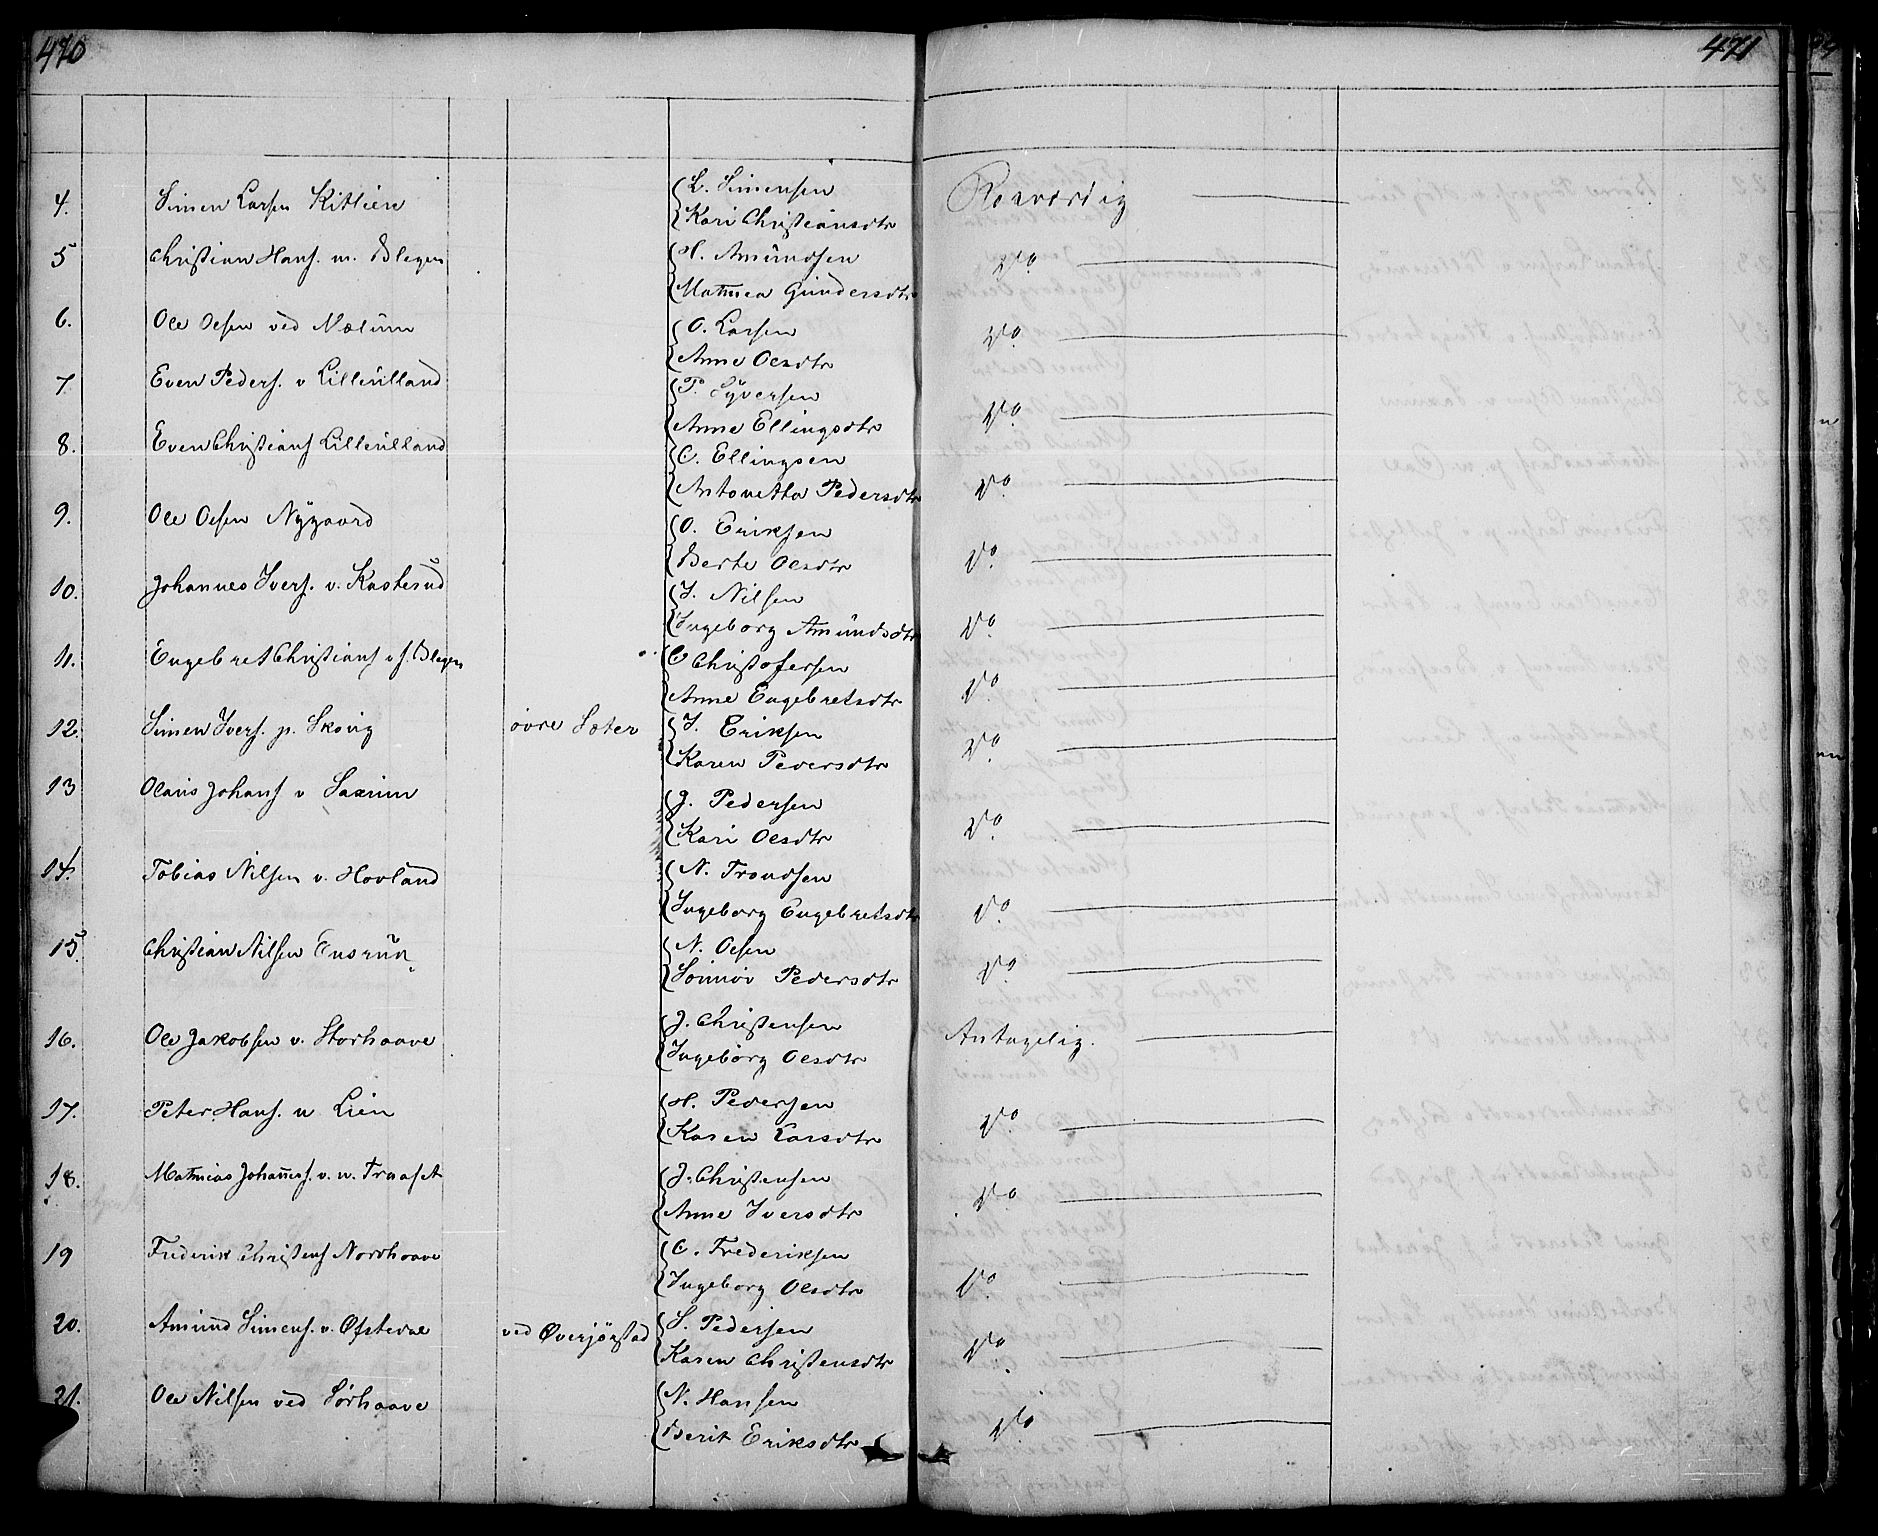 470
471
4. Simen Larsen Kitlien { L. Simensen Rosværdig
{ Kari Christiansdtr
5 Christian Hans. m. Blegen { H. Amundsen Do
{ Mathea Gundersdtr
6. Ole Olsen ved Nælum { O. Larsen Do
{ Anne Olsdtr
7. Even Peders. v Lilleulland { P. Syversen Do
{ Anne Ellingsdtr
8. Even Christians Lilleulland { C. Ellingsen Do
{ Antonetta Pedersdtr
9. Ole Olsen Nygaard { O. Eriksen Do
{ Berte Olsdtr
10. Johannes Ivers. v. Kasterud { I. Nilsen Do
{ Ingeborg Amundsdtr
11. Engebret Christians v s. Blegen { C Christofersen Do
{ Anne Engebretsdtr
12. Simen Ivers. p. Skovig övre Sæter { I. Eriksen Do
{ Karen Pedersdtr
13 Olaus Johans v Saxrum { J. Pedersen Do
{ Kari Olsdtr
14. Tobias Nilsen v. Hovland { N. Trondsen Do
{ Ingeborg Engebretsdtr
15. Christian Nilsen Ensrud { N. Olsen Do
{ Sönnöv Pedersdtr
16. Ole Jakobsen v. Storhaave { J. Christensen Antagelig.
{ Ingeborg Olsdtr
17. Peter Hans. n Lien { H. Pedersen Do
{ Karen Larsdtr
18. Mathias Johanes. v. n. Traaset { J. Christensen Do
{ Anne Iversdtr
19 Frederik Christens Nordhaave { C. Frederiksen Do
{ Ingeborg Olsdtr
20. Amund Simens. v. Ofstedal ved Øverjörstad { S. Pedersen Do
{ Karen Christensdtr
21. Ole Nilsen ved Sörhaave { N. Hansen Do
{ Berit Eriksdtr